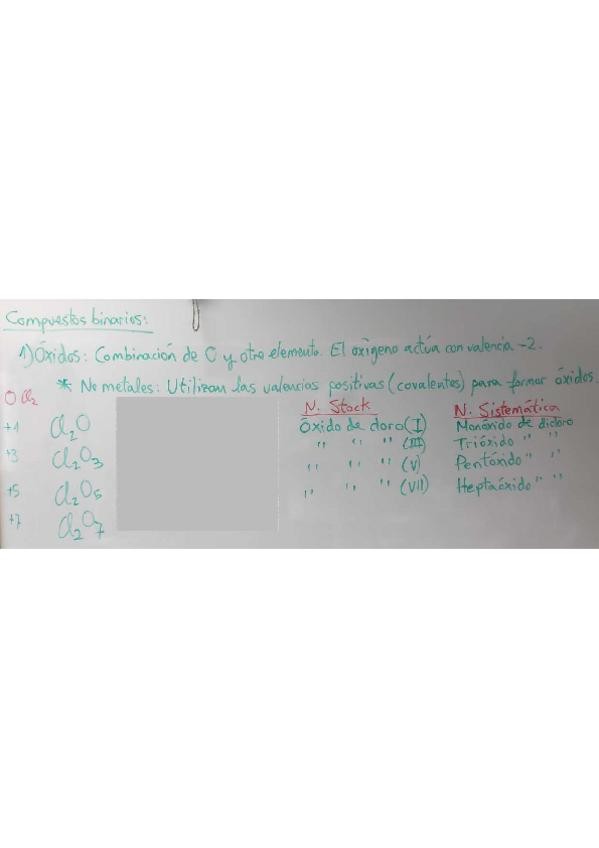 Compuestos binarios:
1) Óxidos: Combinación de O y otro elemento. El oxígeno actúa con valencia -2.
* No metales: Utilizan las valencias positivas (covalentes) para formar óxidos.
O Cl2
N. Stock N. Sistemática
+1 Cl2O Óxido de cloro (I) Monóxido de dicloro
+3 Cl2O3 " " " (III) Trióxido " "
+5 Cl2O5 " " " (V) Pentóxido " "
+7 Cl2O7 " " " (VII) Heptaóxido " "